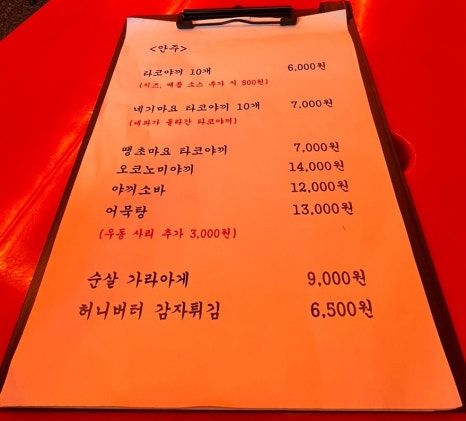 <안주>
타코야끼 10개 6,000원
(치즈, 매콤 소스 추가 시 500원)
네기마요 타코야끼 10개 7,000원
(대파가 올라간 타코야끼)
땡초마요 타코야끼 7,000원
오코노미야끼 14,000원
야끼소바 12,000원
어묵탕 13,000원
(우동 사리 추가 3,000원)
순살 가라아게 9,000원
허니버터 감자튀김 6,500원